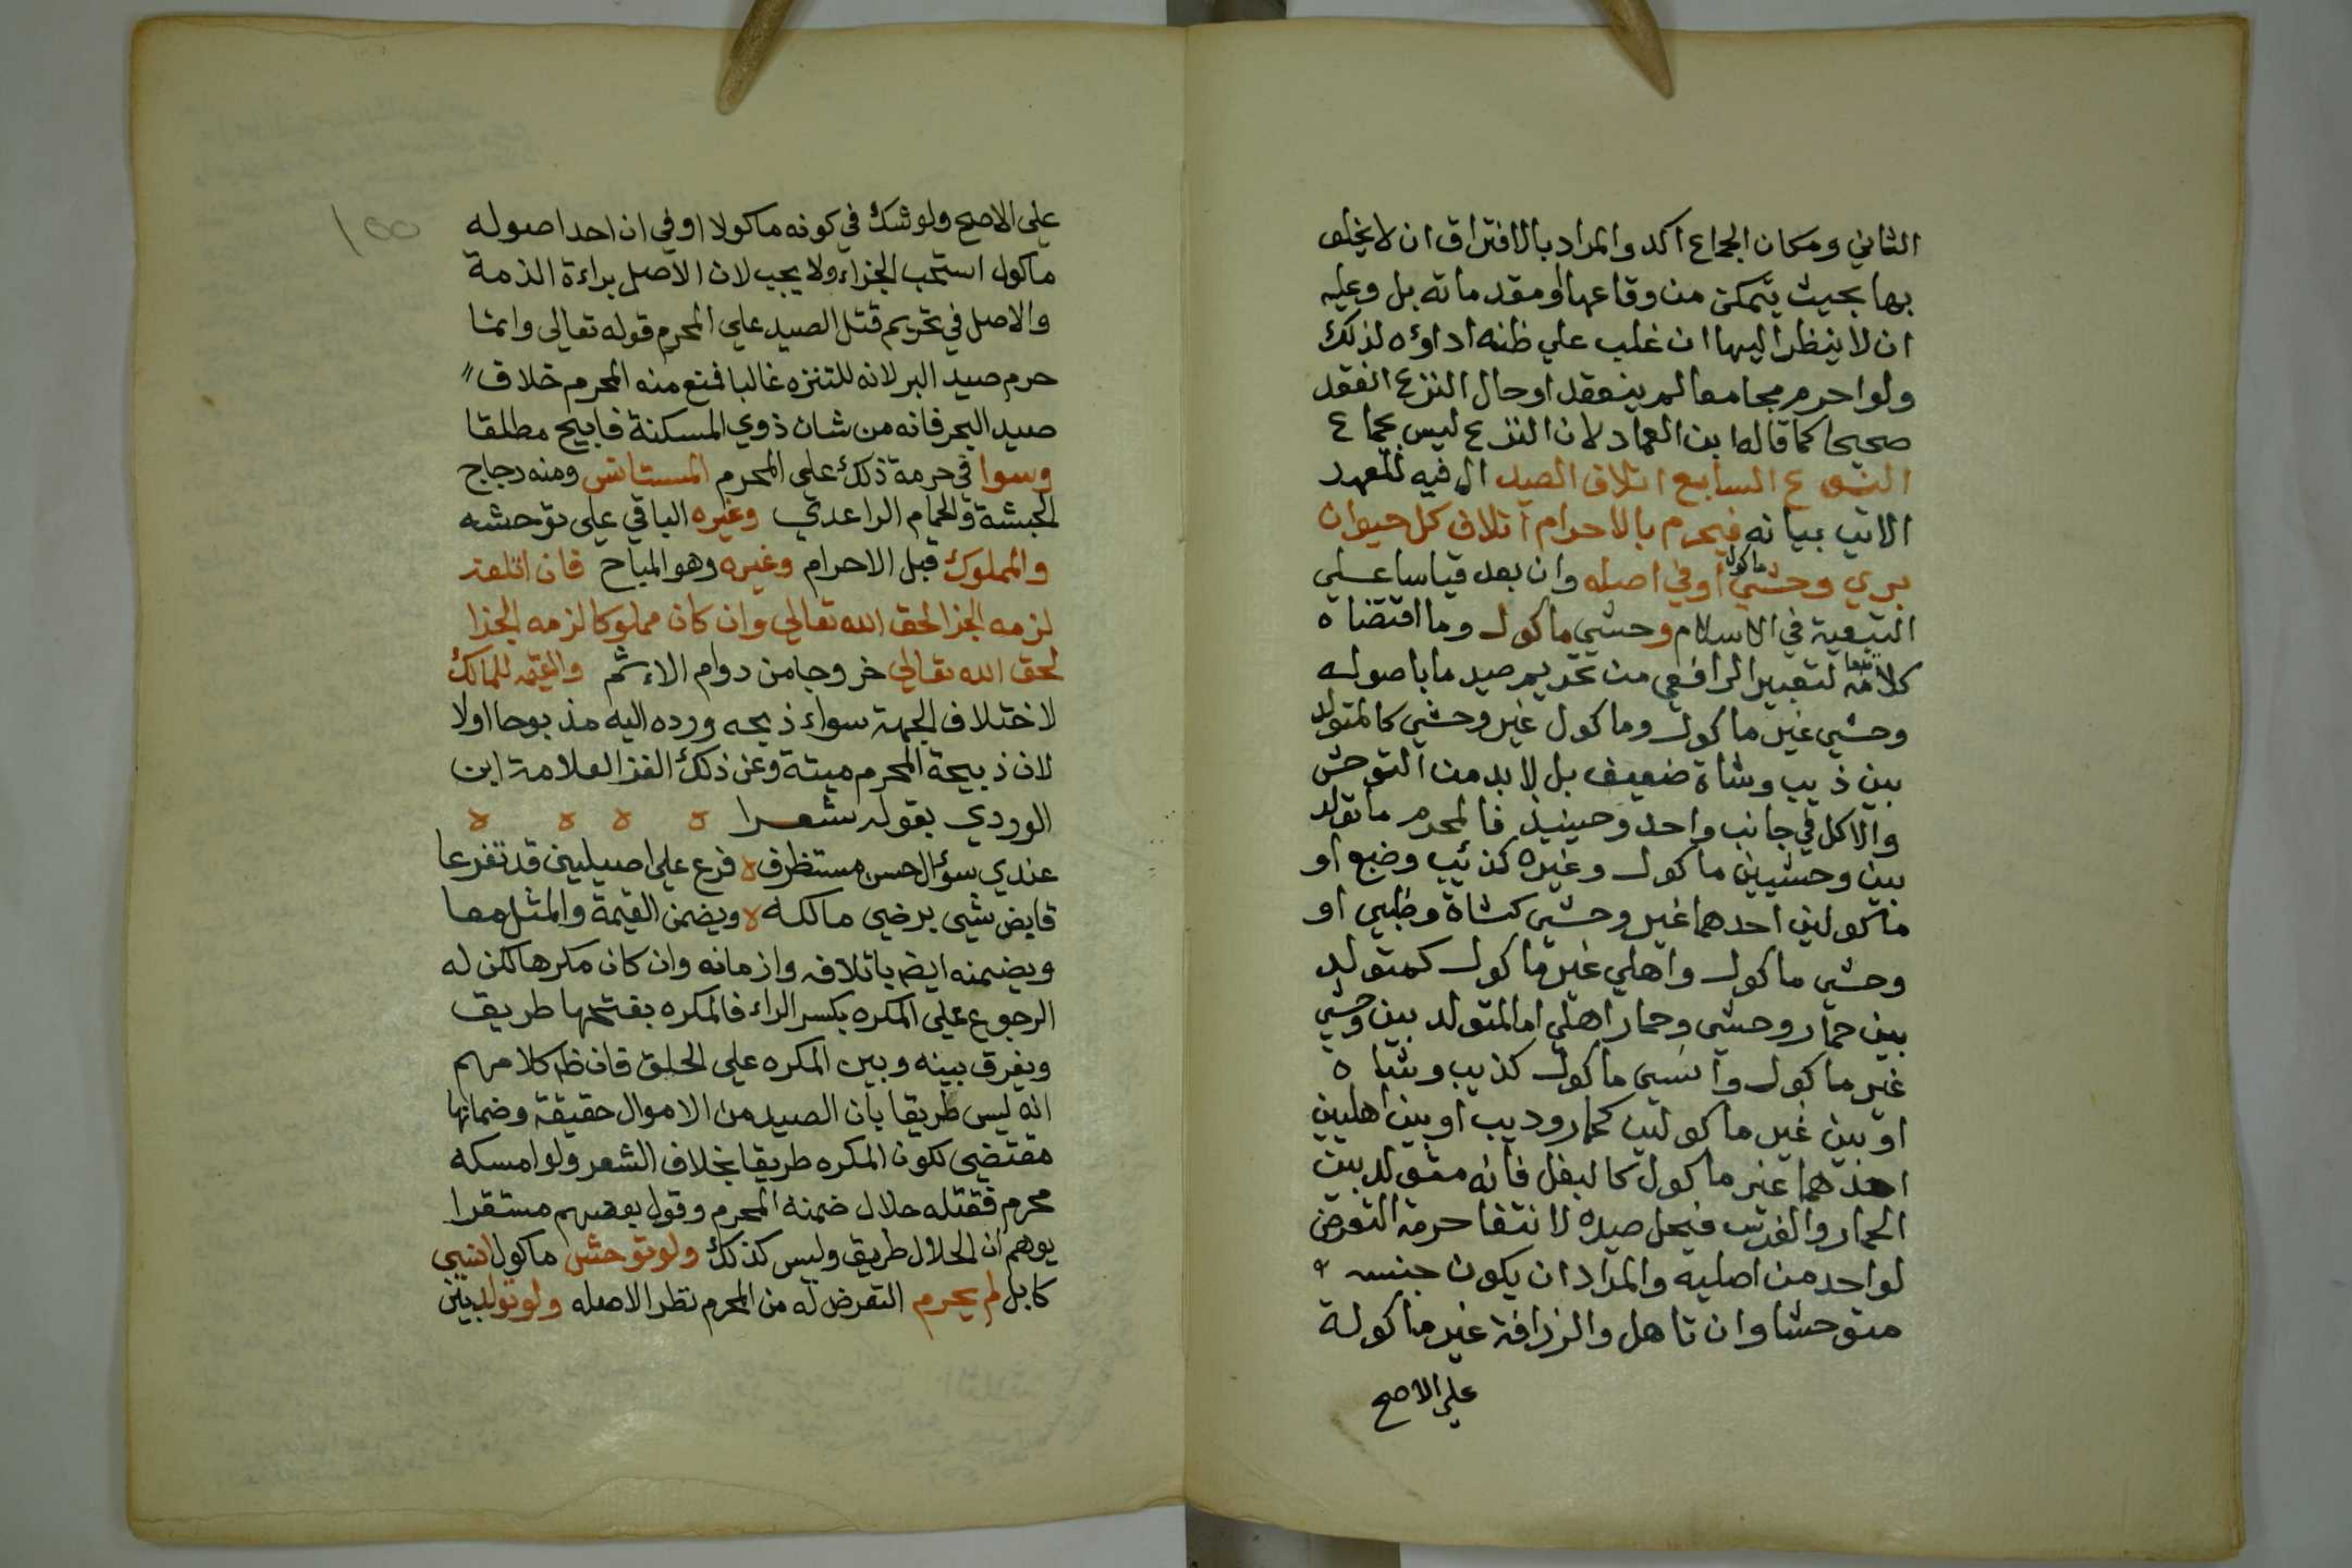 الثاني ومكان الجماع اكد والمراد بالافتراق ان لا يخلو
بها بحيث يتمكن من وقاعها او مقدماته بل وعليه
ان لا ينظر اليها ان غلب علي ظنه اداؤه لذلك
ولو احرم مجامعا لم ينعقد او حال النزع انعقد
صحيحا كما قاله ابن العماد لان النزع ليس بجماع
النوع السابع اتلاف الصيد ال فيه للعهد
الاتي بيانه فيحرم بالاحرام اتلاف كل حيوان
بري وحشي ماكول او في اصله وان بعد قياسا علي
التبعية في الاسلام وحشي ماكول وما اقتضاه
كلامه تبعا لتعبير الرافعي من تحريم صيد ما باصوله
وحشي غير ماكول وماكول غير وحشي كالمتولد
بين ذيب وشاة ضعيف بل لا بد من التوحش
والاكل في جانب واحد وحينيذ فالمحرم ما تولد
بين وحشيين ماكول وغيره كذئب وضبع او
ماكولين احدهما غير وحشي كشاة وظبي او
وحشي ماكول واهلي غير ماكول كمتولد
بين حمار وحشي وحمار اهلي اما المتولد بين وحشي
غير ماكول وانسي ماكول كذيب وشاه
او بين غير ماكولين كحمار وديب او بين اهليين
احدهما غير ماكول كالبغل فانه متولد بين
الحمار والفرس فيحل صيده لانتفا حرمة التعرض
لواحد من اصليه والمراد ان يكون جنسه
متوحشا وان تاهل والزرافة غير ماكولة
علي الاصح
علي الاصح ولو شك في كونه ماكولا او في ان احد اصوله
ماكول استحب الجزاء ولا يجب لان الاصل براءة الذمة
والاصل في تحريم قتل الصيد علي المحرم قوله تعالي وانما
حرم صيد البر لانه للتنزه غالبا فمنع منه المحرم خلاف
صيد البحر فانه من شان ذوي المسكنة فابيح مطلقا
وسوا في حرمة ذلك علي المحرم المستانس ومنه دجاج
الحبشة والحمام الراعدي وغيره الباقي علي توحشه
والمملوك قبل الاحرام وغيره وهو المباح فان اتلفه
لزمه الجزا لحق الله تعالي وان كان مملوكا لزمه الجزا
لحق الله تعالي خروجا من دوام الاثم والقيمة للمالك
لاختلاف الجهة سواء ذبحه ورده اليه مذبوحا اولا
لان ذبيحة المحرم ميتة وعن ذلك الغز العلامة ابن
الوردي بقوله شعرا ه ه ه ه
عندي سؤال حسن مستظرف ه فرع علي اصيلين قد تفرعا
قابض شيي برضي مالكه ه ويضمن القيمة والمثل معا
ويضمنه ايضا باتلافه وازمانه وان كان مكرها لكن له
الرجوع علي المكره بكسر الراء فالمكره بفتحها طريق
ويفرق بينه وبين المكره علي الحلق فان ظ كلامهم
انه ليس طريقا بان الصيد من الاموال حقيقة وضمانها
مقتضي لكون المكره طريقا بخلاف الشعر ولو امسكه
محرم فقتله حلال ضمنه المحرم وقول بعضهم مستقرا
يوهم ان الحلال طريق وليس كذلك ولو توحش ماكول انسي
كابل لم يحرم التعرض له من المحرم نظرا لاصله ولو تولد بين